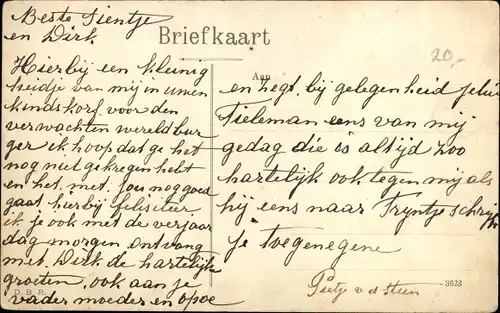 Beste Sientje
en Dirk
Briefkaart
20,-
Hierbij een kleinig
heidje van mij in uwen
kindskorf, voor den
verwachten wereldbur
ger ik hoop dat ge het
nog niet gekregen hebt
en het met jou nog goed
gaat hierbij feliciteer
ik je ook met de verjaar
dag morgen, ontvang
met Dirk de hartelijke
groeten, ook aan je
vader moeder en opoe
D. B. R.
Aan
en zegt, bij gelegenheid
Tieleman eens van mij
gedag die is altijd zoo
hartelijk ook tegen mij als
hij eens naar Fryntje
je Toegenegene
Pietje v d Steen
3623